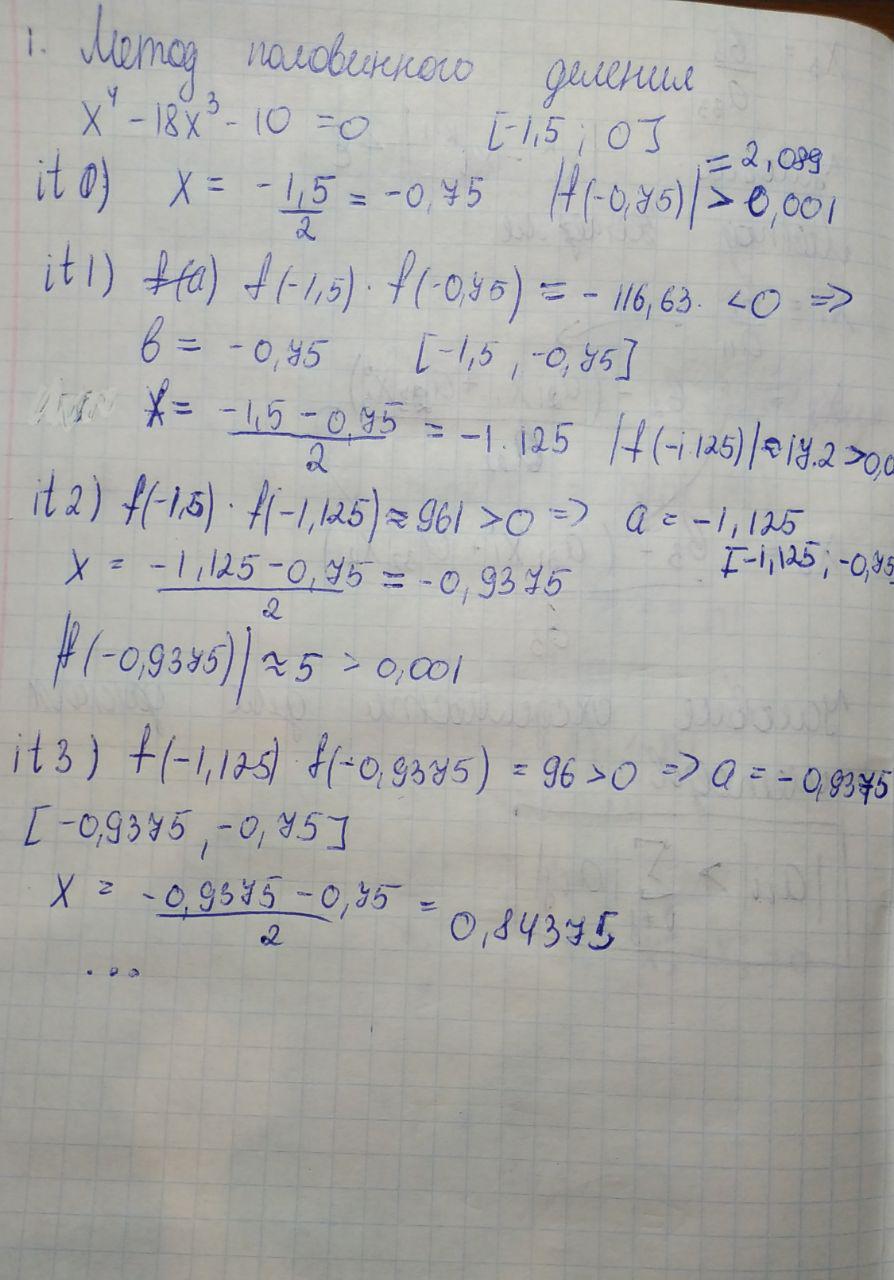 1. Метод половинного деления
x⁴ - 18x³ - 10 = 0 [-1,5 ; 0]
it 0) x = -1,5/2 = -0,75 |f(-0,75)| = 2,089 > 0,001
it 1) f(a) f(-1,5) · f(-0,75) = -116,63. < 0 =>
b = -0,75 [-1,5 , -0,75]
x = (-1,5 - 0,75)/2 = -1.125 |f(-1.125)| ≈ 17.2 > 0,0
it 2) f(-1,5) · f(-1,125) ≈ 961 > 0 => a = -1,125
[-1,125 ; -0,75
x = (-1,125 - 0,75)/2 = -0,9375
|f(-0,9375)| ≈ 5 > 0,001
it 3) f(-1,125) f(-0,9375) = 96 > 0 => a = -0,9375
[-0,9375 , -0,75]
x = (-0,9375 - 0,75)/2 = 0,84375
...